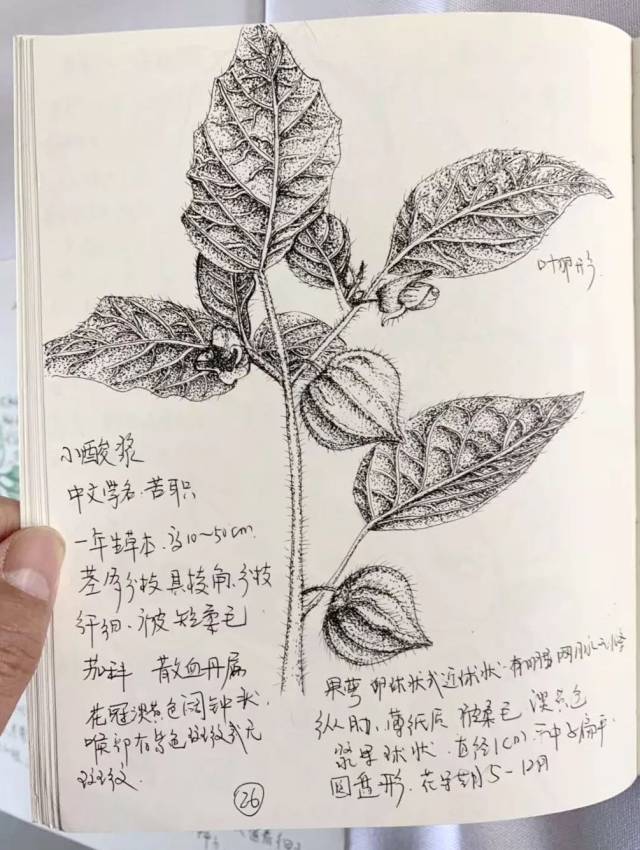 叶卵形.
小酸浆
中文学名.苦职
一年生草本.高10~50cm.
茎多分枝 具棱角.分枝
纤细.被短柔毛
茄科 散血丹属
花冠淡黄色阔钟状,
喉部有紫色斑纹或无
斑纹.
果萼 卵球状或近球状.有明显网脉
纵肋,薄纸质 被柔毛 淡黄色
浆果球状.直径1cm.种子扁平.
圆盘形.花果期5-12月
26